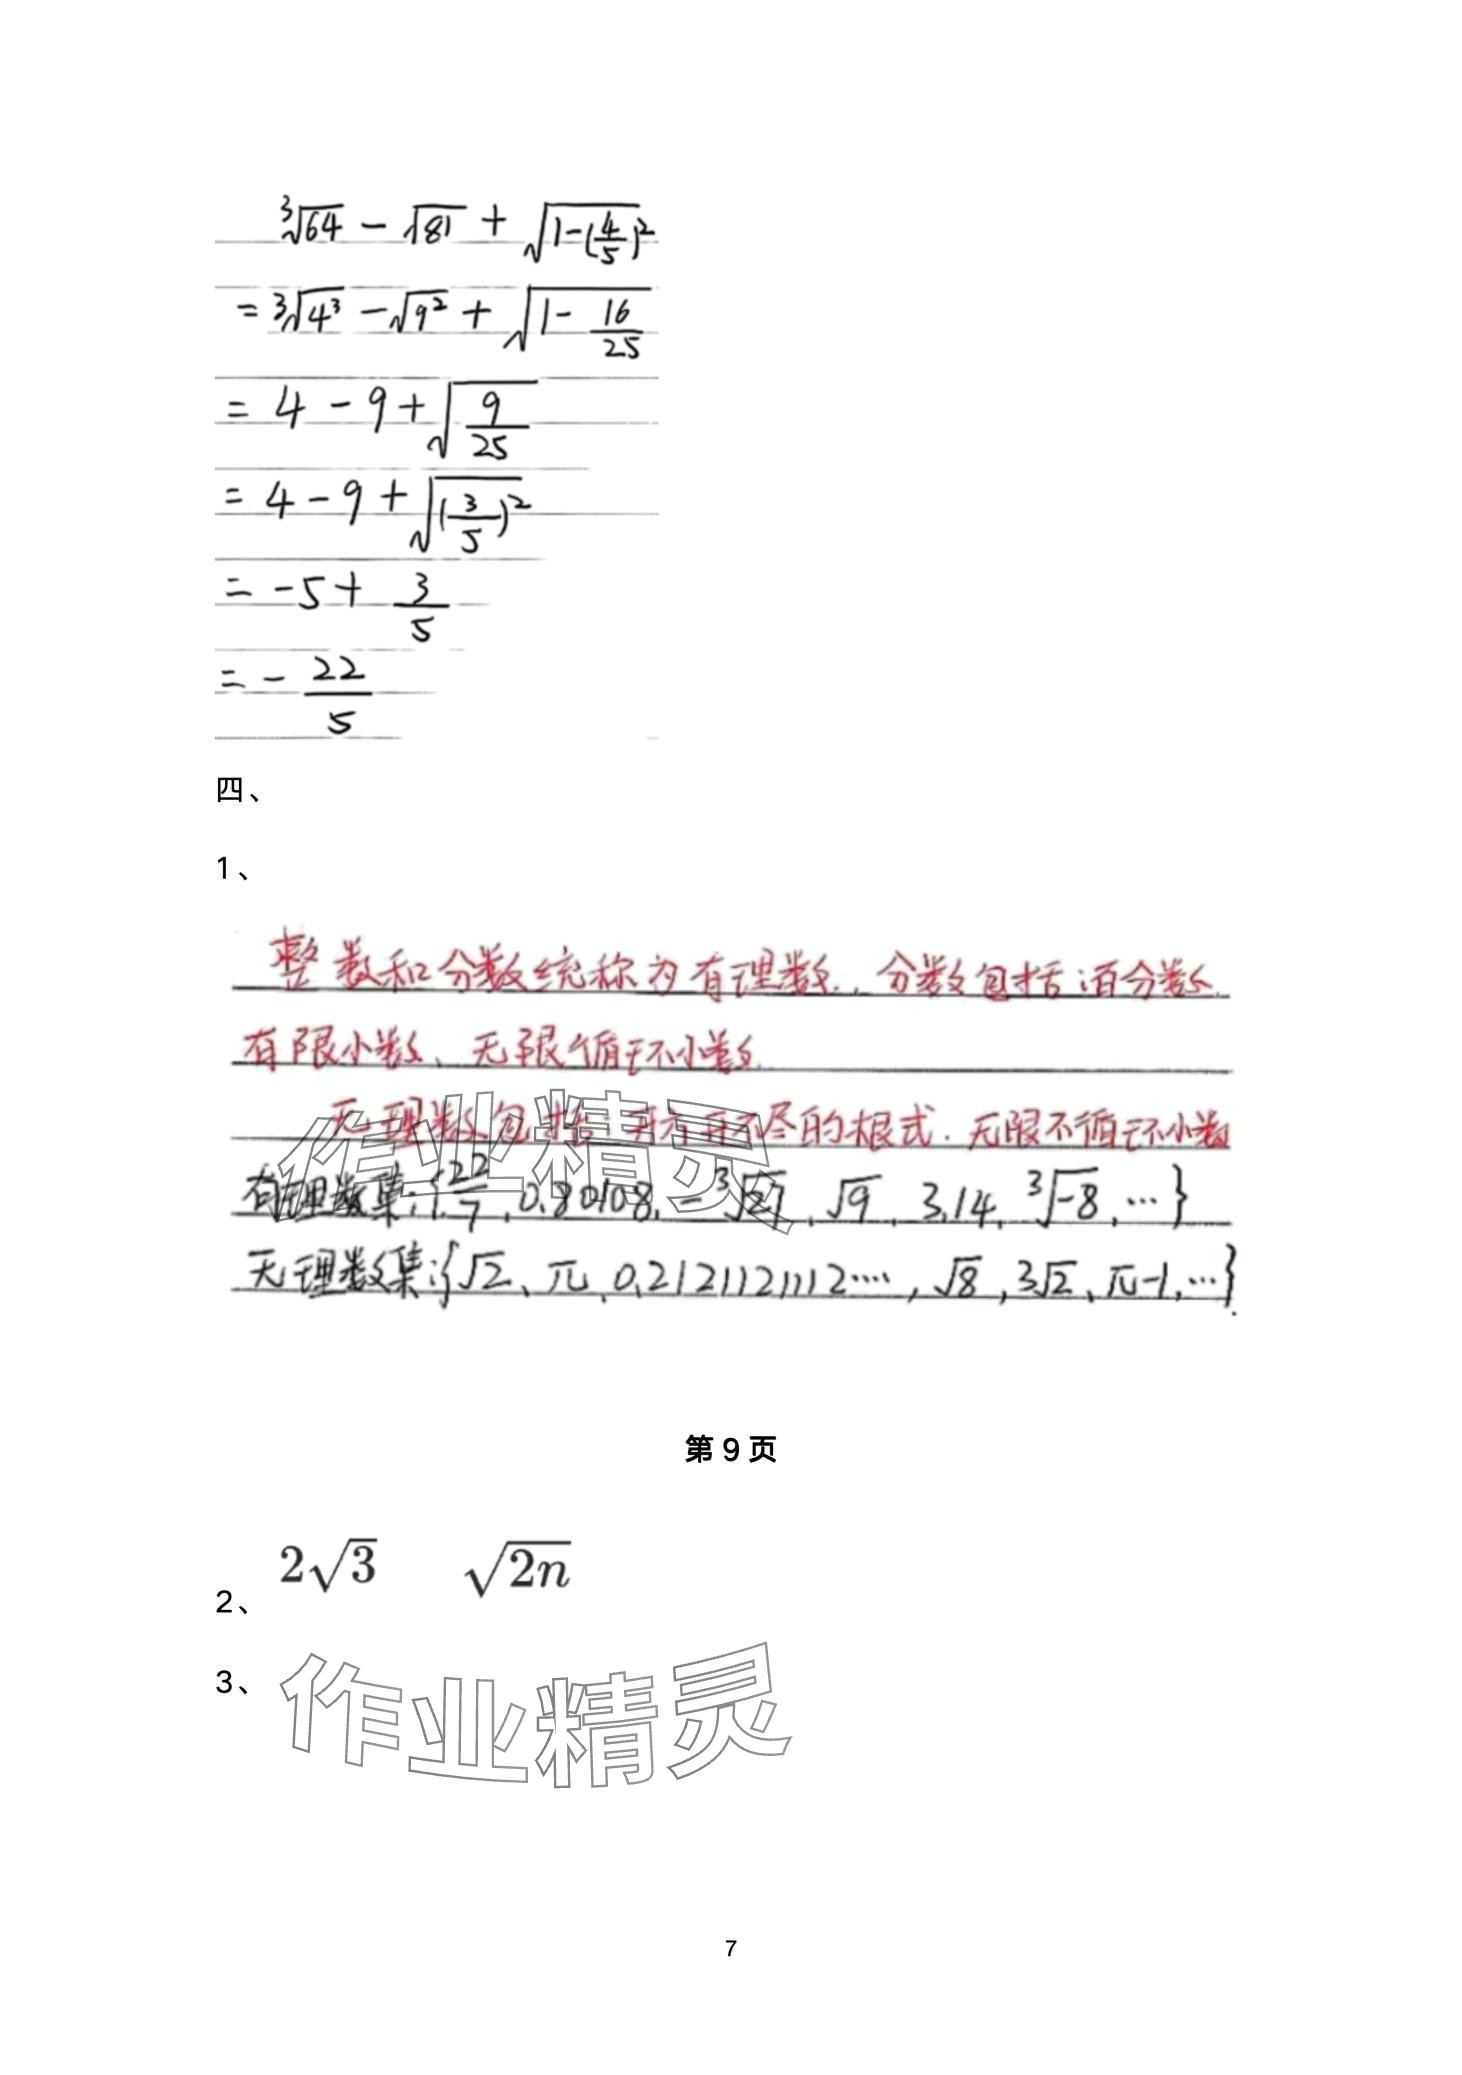 ∛64 - √81 + √(1-(4/5)²)
= ∛4³ - √9² + √(1 - 16/25)
= 4 - 9 + √(9/25)
= 4 - 9 + √((3/5)²)
= -5 + 3/5
= - 22/5
四、
1、
整数和分数统称为有理数. 分数包括：百分数.
有限小数、无限循环小数.
无理数包括：开方开不尽的根式. 无限不循环小数
有理数集：{22/7, 0.80108, -∛27, √9, 3.14, ∛-8, …}
无理数集：{√2、π、0.2121121112…., √8, 3√2、π-1, …}.
作业精灵
第 9 页
2、 2√3 √2n
3、
作业精灵
7